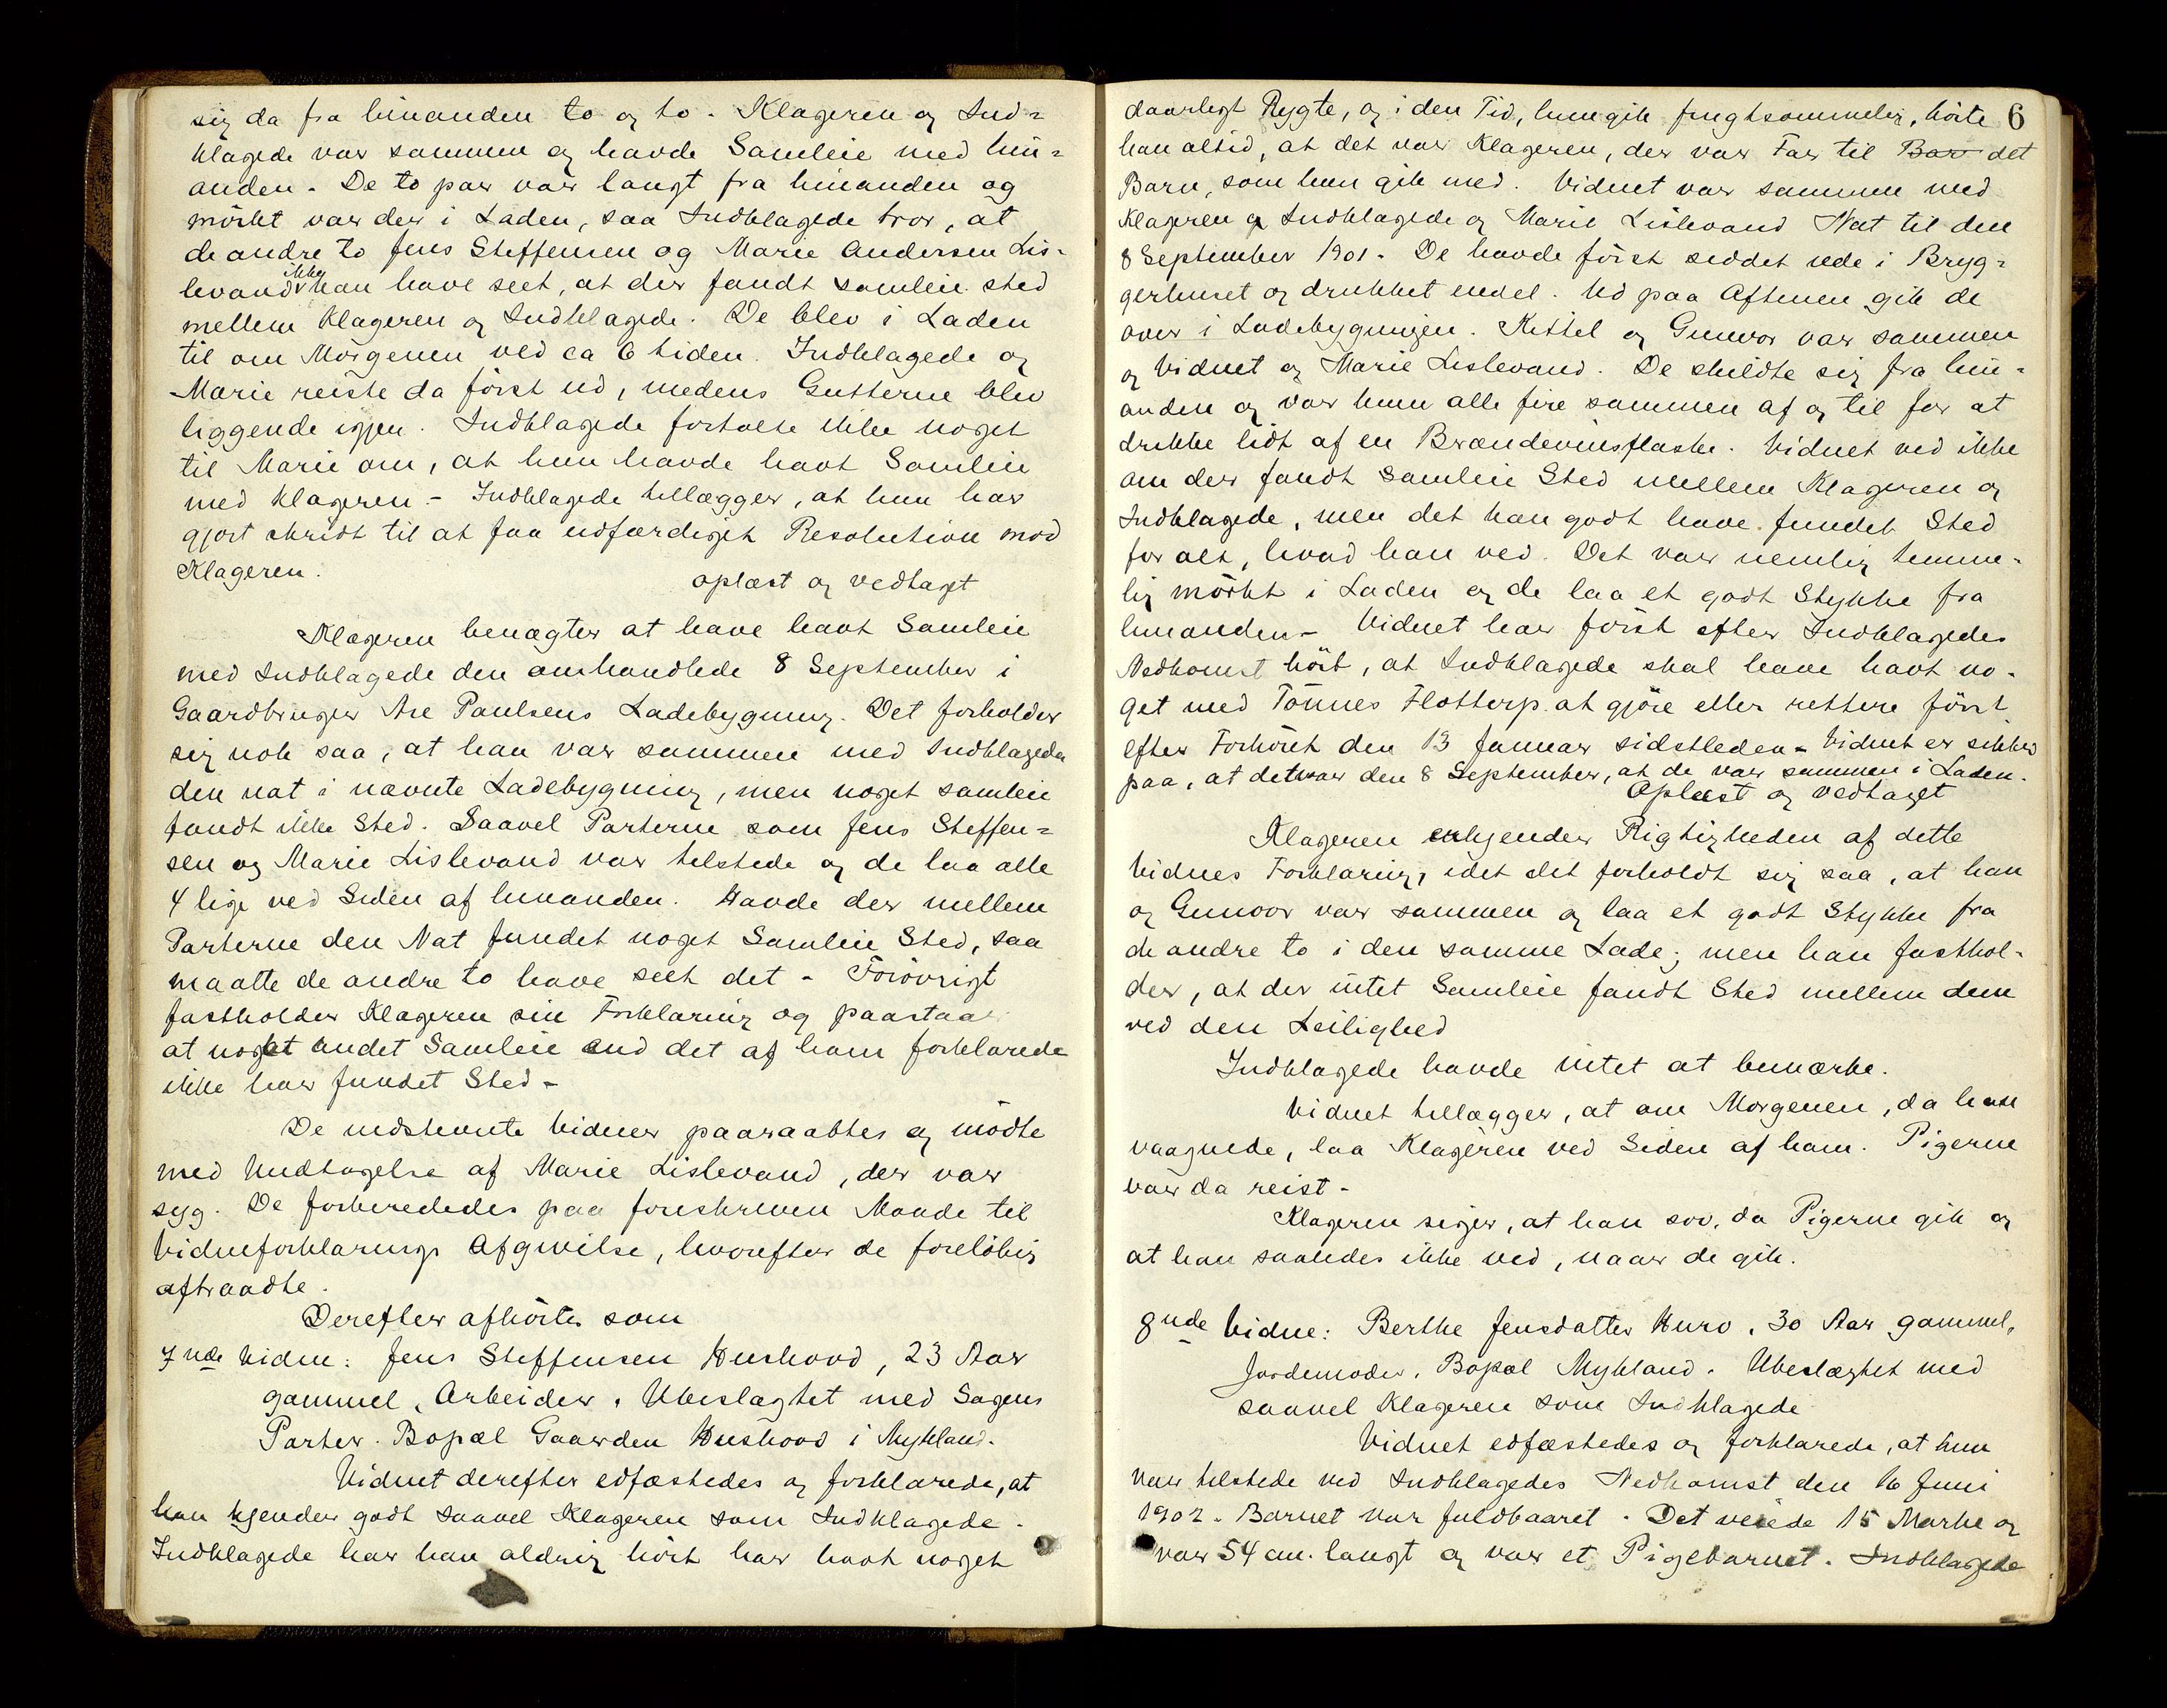 sig da fra hinanden to og to. Klageren og Ind=
klagede var sammen og havde Samleie med hin=
anden. De to par var langt fra hinanden og
mörkt var der i Laden, saa Indklagede tror, at
de andre to Jens Steffensen og Marie Andersen Lis-
levand ikke kan have seet, at der fandt samleie sted
mellem Klageren og Indklagede. De blev i Laden
til om Morgenen ved ca 6 tiden. Indklagede og
Marie reiste da först ud, medens Gutterne blev
liggende igjen. Indklagede fortalte ikke noget
til Marie om, at hun havde havt Samleie
med Klageren - Indklagede tillægger, at hun har
gjort skridt til at faa udfærdiget Resolution mod
Klageren.
oplæst og vedtaget
Klageren benægter at have havt Samleie
med Indklagede den omhandlede 8 September i
Gaardbruger Are Paulsens Ladebygning. Det forholder
sig nok saa, at han var sammen med Indklagede
den nat i nævnte Ladebygning, men noget samleie
fandt ikke Sted. Saavel Parterne som Jens Steffen=
sen og Marie Lislevand var tilstede og de laa alle
4 lige ved Siden af hinanden. Havde der mellem
Parterne den Nat fundet noget Samleie Sted, saa
maatte de andre to have seet det - Forövrigt
fastholder Klageren sin Forklaring og paastaar
at noget andet Samleie end det af ham forklarede
ikke har fundet Sted -
De indstevnte Vidner paaraabtes og mödte
med Undtagelse af Marie Lislevand, der var
syg. De forberededes paa foreskreven Maade til
Vidneforklarings Afgivelse, hvorefter de forelöbig
aftraadte.
Derefter afhörtes som
7nde Vidne: Jens Steffensen Hushovd, 23 Aar
gammel, Arbeider. Ubeslægtet med Sagens
Parter. Bopæl Gaarden Hushovd i Mykland.
Vidnet derefter edfæstedes og forklarede, at
han kjender godt saavel Klageren som Indklagede.
Indklagede har han aldrig hört har havt noget
6
daarligt Rygte, og i den Tid, hun gik frugtsommelig, hörte
han altid, at det var Klageren, der var Far til Bar det
Barn, som hun gik med. Vidnet var sammen med
Klageren og Indklagede og Marie Lislevand Nat til den
8 September 1901. De havde först siddet nede i Bryg=
gerhuset og drukket endel. Ud paa Aftenen gik de
over i Ladebygningen. Kittel og Gunvor var sammen
og Vidnet og Marie Lislevand. De skildte sig fra hin=
anden og var kun alle fire sammen af og til for at
drikke lidt af en Brændevinsflaske. Vidnet ved ikke
om der fandt samleie Sted mellem Klageren og
Indklagede, men det kan godt have fundet Sted
for alt, hvad han ved. Det var nemlig temme-
lig mörkt i Laden og de laa et godt Stykke fra
hinanden - Vidnet har först efter Indklagedes
Nedkomst hört, at Indklagede skal have havt no-
get med Tönnes Flotterp at gjöre eller rettere först
efter Forhöret den 13 Januar sidstleden - Vidnet er sikker
paa, at det var den 8 September, at de var sammen i Laden.
Oplæst og vedtaget
Klageren erkjender Rigtigheden af dette
Vidnes Forklaring, idet det forholdt sig saa, at han
og Gunvor var sammen og laa et godt Stykke fra
de andre to i den samme Lade; men han fasthol-
der, at der intet Samleie fandt Sted mellem dem
ved den Leilighed
Indklagede havde intet at bemærke.
Vidnet tillægger, at om Morgenen, da han
vaagnede, laa Klageren ved Siden af ham. Pigerne
var da reist -
Klageren siger, at han sov, da Pigerne gik og
at han saaledes ikke ved, naar de gik.
8nde Vidne: Berthe Jensdatter Huro, 30 Aar gammel,
Jordemoder. Bopæl Mykland. Ubeslægtet med
saavel Klageren som Indklagede
Vidnet edfæstedes og forklarede, at hun
var tilstede ved Indklagedes Nedkomst den 16 Juni
1902. Barnet var fuldbaaret. Det veiede 15 Marke og
var 54 cm. langt og var et Pigebarnet. Indklagede